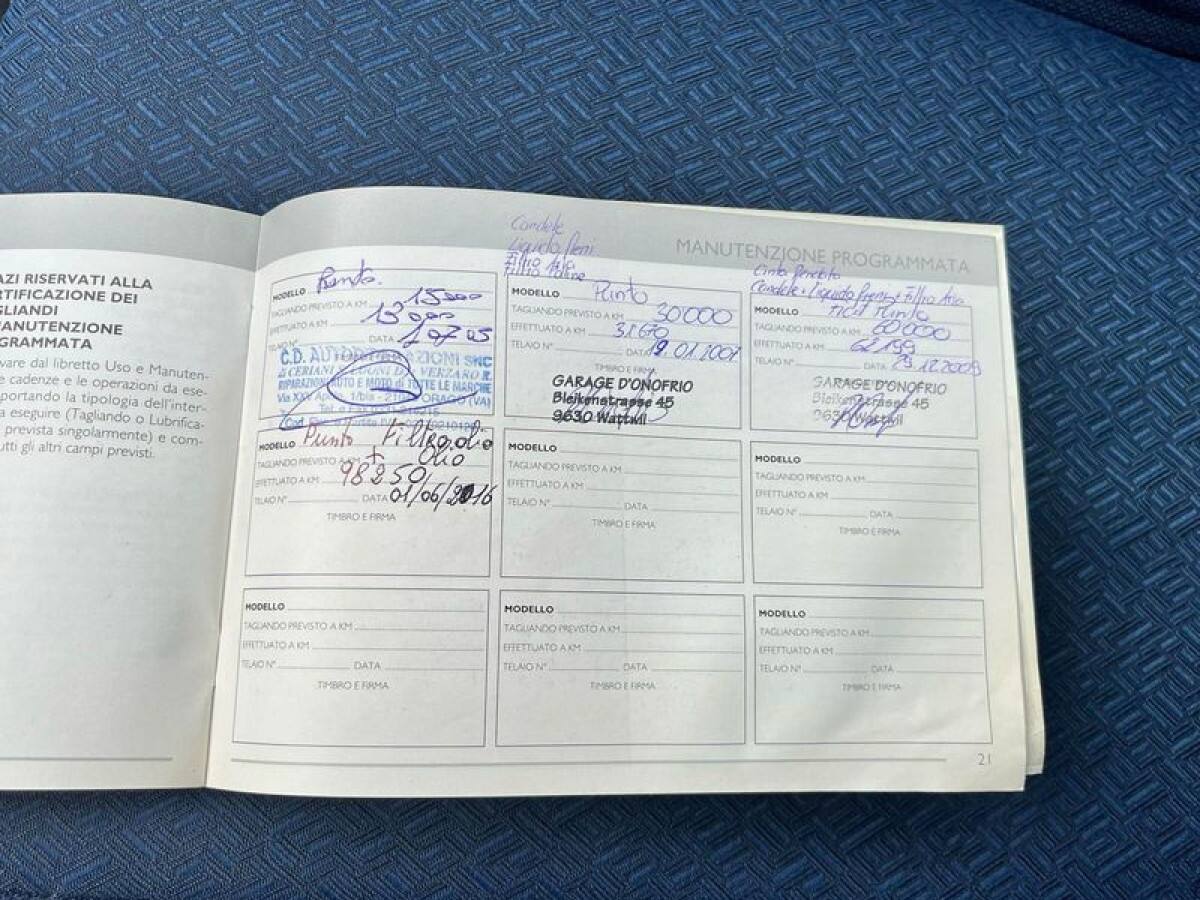 AZI RISERVATI ALLA
RTIFICAZIONE DEI
GLIANDI
MANUTENZIONE
GRAMMATA
vare dal libretto Uso e Manuten-
e cadenze e le operazioni da ese-
portando la tipologia dell'inter-
a eseguire (Tagliando o Lubrifica-
prevista singolarmente) e com-
tti gli altri campi previsti.
MANUTENZIONE PROGRAMMATA
MODELLO Punto.
TAGLIANDO PREVISTO A KM 15000
EFFETTUATO A KM 13000
TELAIO N° DATA
C.D. AUTORIPARAZIONI SNC
di CERIANI
RIPARAZIONI AUTO E MOTO di TUTTE LE MARCHE
Via XXV 1/bis ORAGO (VA)
Candele
Liquido freni
Filtro
Filtro
MODELLO Punto
TAGLIANDO PREVISTO A KM 30000
EFFETTUATO A KM 31670
TELAIO N° DATA 01.2007
TIMBRO E FIRMA
GARAGE D'ONOFRIO
Bleikenstrasse 45
9630 Wattwil
Candele Liquido Freni Filtro
MODELLO Punto
TAGLIANDO PREVISTO A KM 60000
EFFETTUATO A KM 62199
TELAIO N° DATA 29.12.2009
GARAGE D'ONOFRIO
Bleikenstrasse 45
9630 Wattwil
MODELLO Punto Filtro olio
TAGLIANDO PREVISTO A KM + Olio
EFFETTUATO A KM 98250
TELAIO N° DATA 01/06/2016
TIMBRO E FIRMA
MODELLO
TAGLIANDO PREVISTO A KM
EFFETTUATO A KM
TELAIO N° DATA
TIMBRO E FIRMA
MODELLO
TAGLIANDO PREVISTO A KM
EFFETTUATO A KM
TELAIO N° DATA
TIMBRO E FIRMA
MODELLO
TAGLIANDO PREVISTO A KM
EFFETTUATO A KM
TELAIO N° DATA
TIMBRO E FIRMA
MODELLO
TAGLIANDO PREVISTO A KM
EFFETTUATO A KM
TELAIO N° DATA
TIMBRO E FIRMA
MODELLO
TAGLIANDO PREVISTO A KM
EFFETTUATO A KM
TELAIO N° DATA
TIMBRO E FIRMA
21